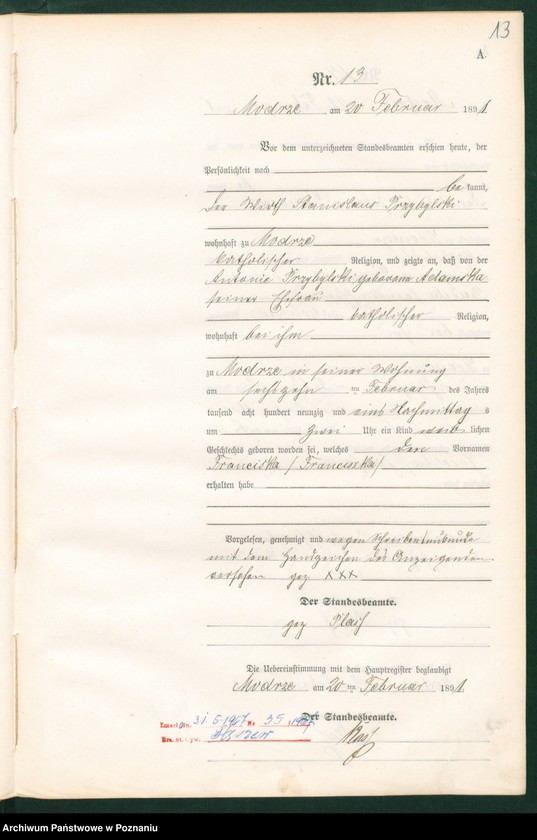 13
A.
Nr. 13
Modrze am 20 Februar 1891
Vor dem unterzeichneten Standesbeamten erschien heute, der
Persönlichkeit nach
bekannt,
der Wirth Stanislaus Przybylski
wohnhaft zu Modrze
katholischer Religion, und zeigte an, daß von der
Antonie Przybylski geborene Adamska
seiner Ehefrau
katholischer Religion,
wohnhaft bei ihm
zu Modrze in seiner Wohnung
am sechszehn ten Februar des Jahres
tausend acht hundert neunzig und eins Nachmittag s
um zwei Uhr ein Kind weib lichen
Geschlechts geboren worden sei, welches den Vornamen
Franciska /Franciszka/
erhalten habe
Vorgelesen, genehmigt und wegen Schreibensunkunde
mit dem Handzeichen des Anzeigenden
versehen gez XXX
Der Standesbeamte.
gez
Die Uebereinstimmung mit dem Hauptregister beglaubigt
Modrze am 20 ten Februar 1891.
Der Standesbeamte.
31.5.1967 Nr 35
Archiwum Państwowe w Poznaniu